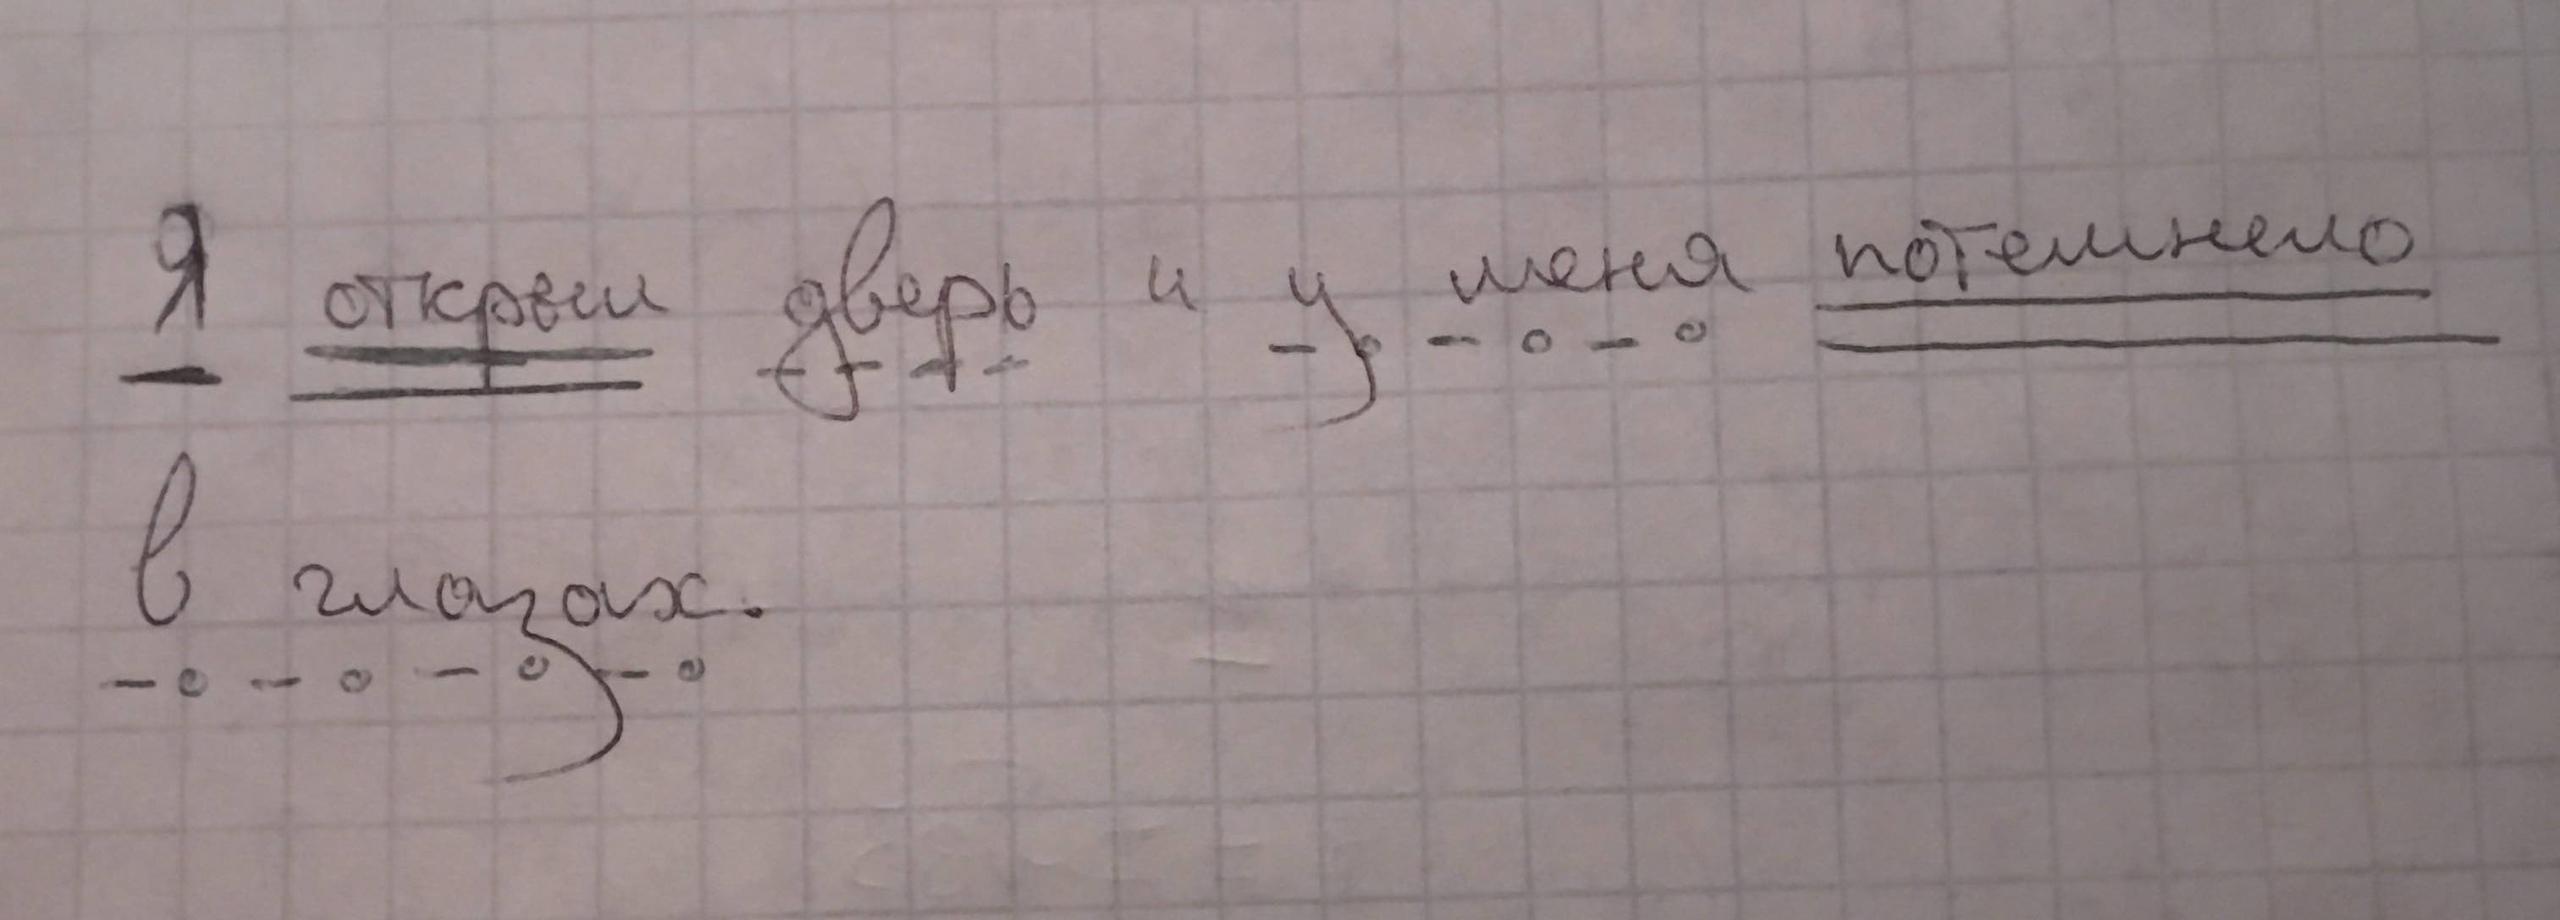 Я открыл дверь и у меня потемнело
в глазах.